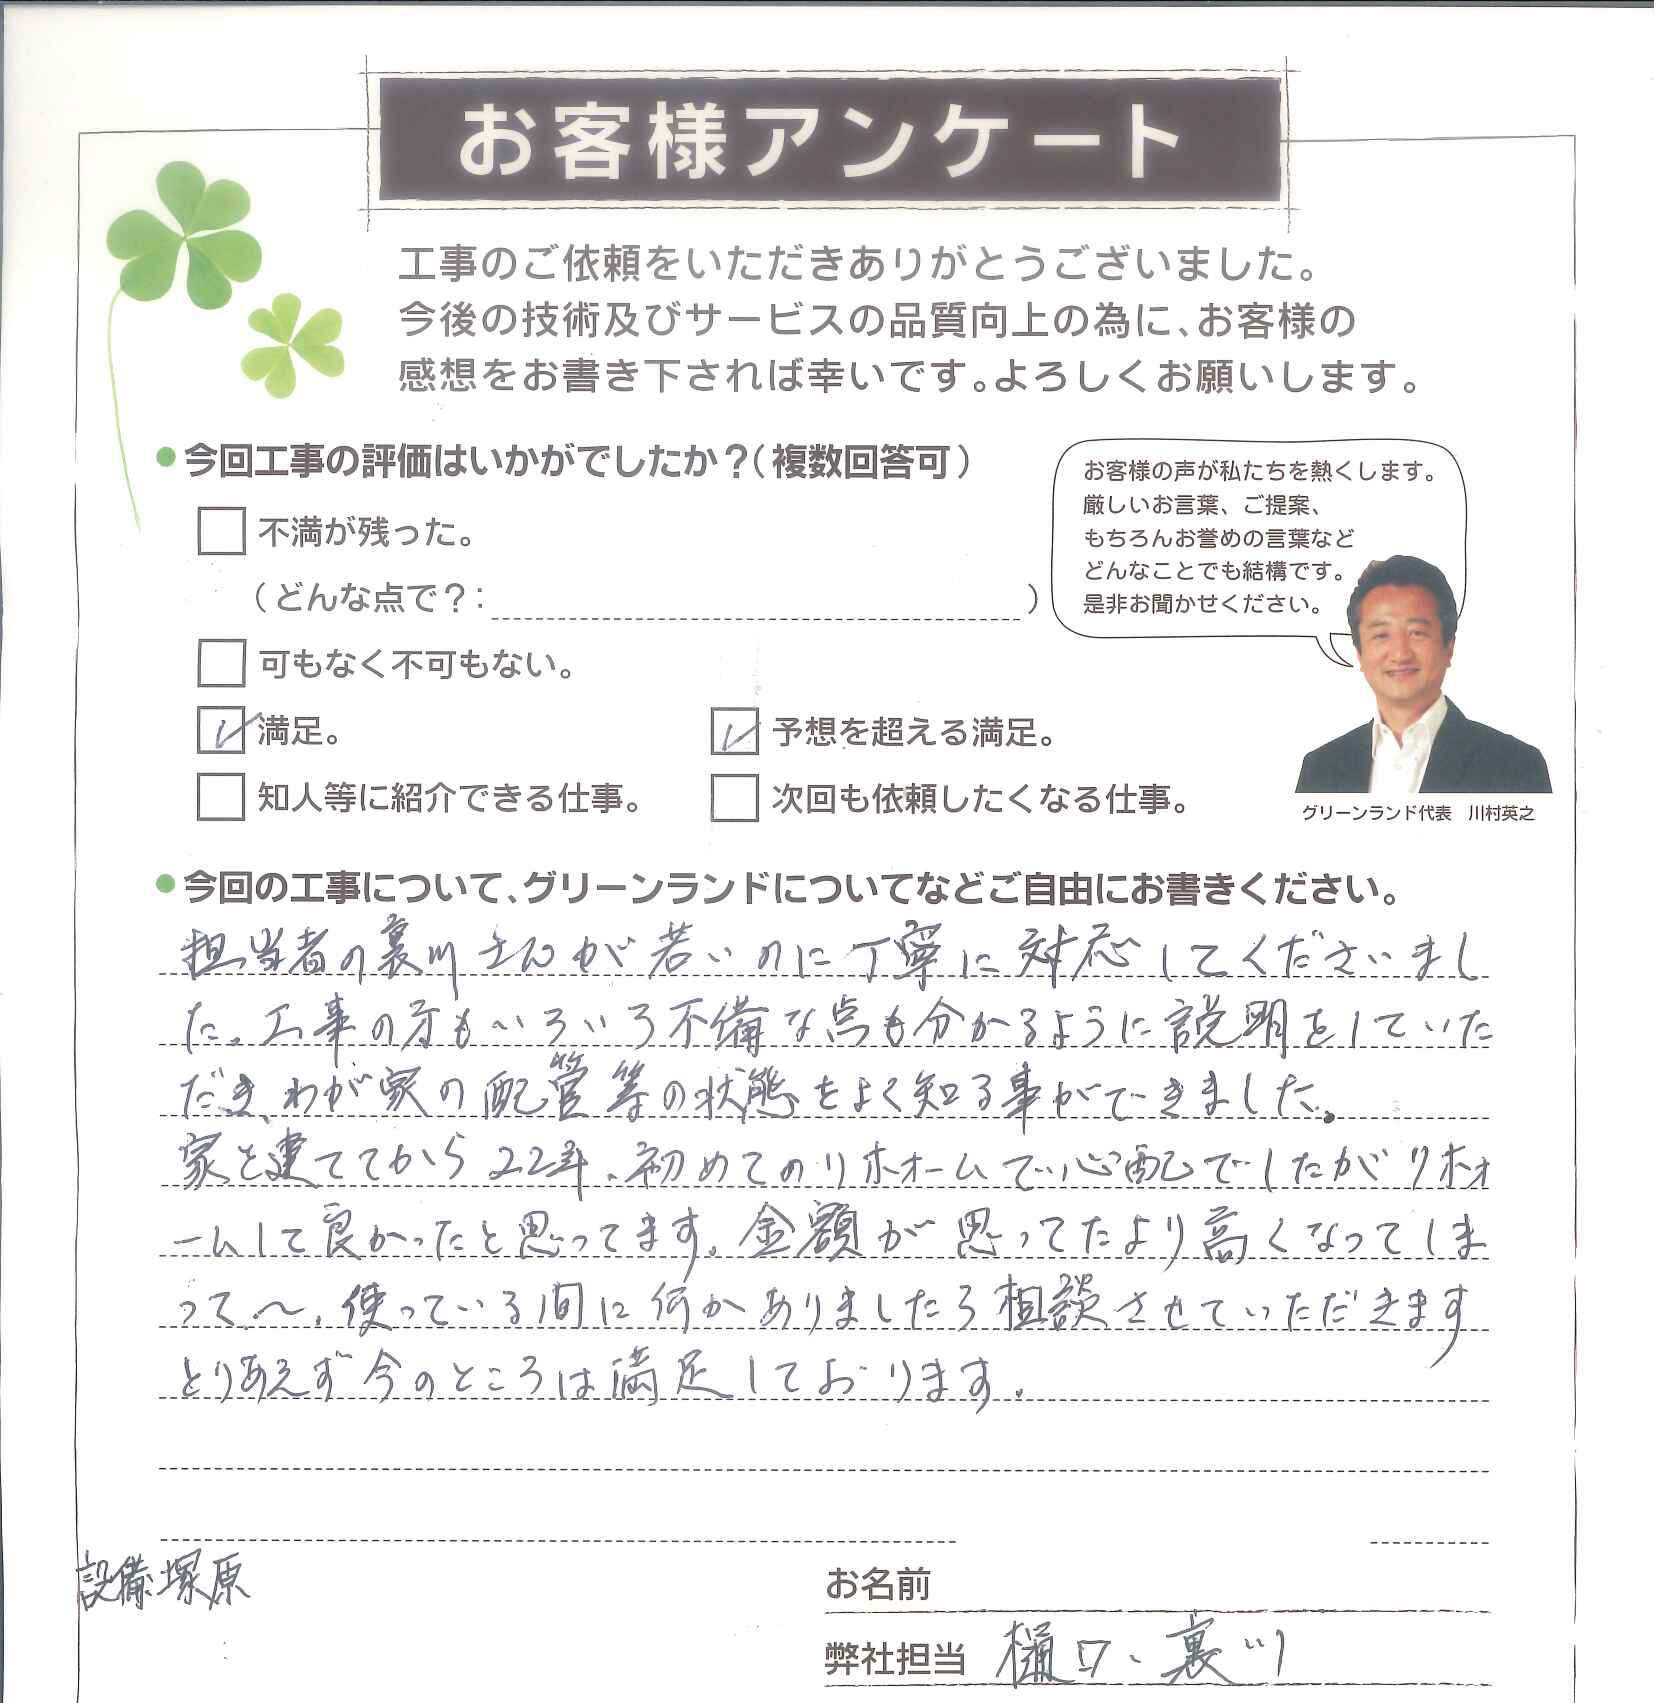 お客様アンケート
工事のご依頼をいただきありがとうございました。
今後の技術及びサービスの品質向上の為に、お客様の
感想をお書き下されば幸いです。よろしくお願いします。
今回工事の評価はいかがでしたか？（複数回答可）
不満が残った。
（どんな点で？：　）
可もなく不可もない。
満足。
予想を超える満足。
知人等に紹介できる仕事。
次回も依頼したくなる仕事。
お客様の声が私たちを熱くします。
厳しいお言葉、ご提案、
もちろんお誉めの言葉など
どんなことでも結構です。
是非お聞かせください。
グリーンランド代表　川村英之
今回の工事について、グリーンランドについてなどご自由にお書きください。
担当者の裏川さんが若いのに丁寧に対応してくださいまし
た。工事の方もいろいろ不備な点も分かるように説明をしていた
だき、わが家の配管等の状態をよく知る事ができました。
家を建ててから22年、初めてのリホォームで心配でしたがリホォ
ームして良かったと思ってます。金額が思ってたより高くなってしま
って〜、使っている間に何かありましたら相談させていただきます
とりあえず今のところは満足しております。
設備塚原
お名前
弊社担当 樋口、裏川